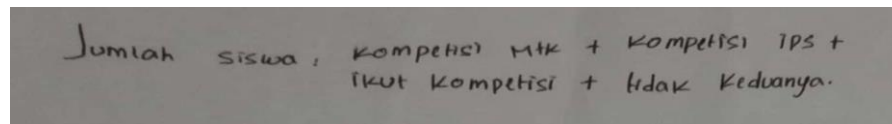 Jumlah siswa : kompetisi Mtk + kompetisi IPS +
ikut kompetisi + tidak keduanya.